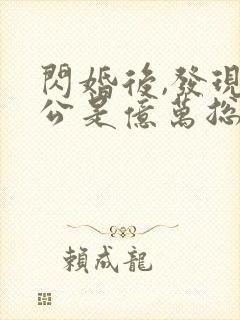 閃婚後,發現
公是億萬總
賴成龍